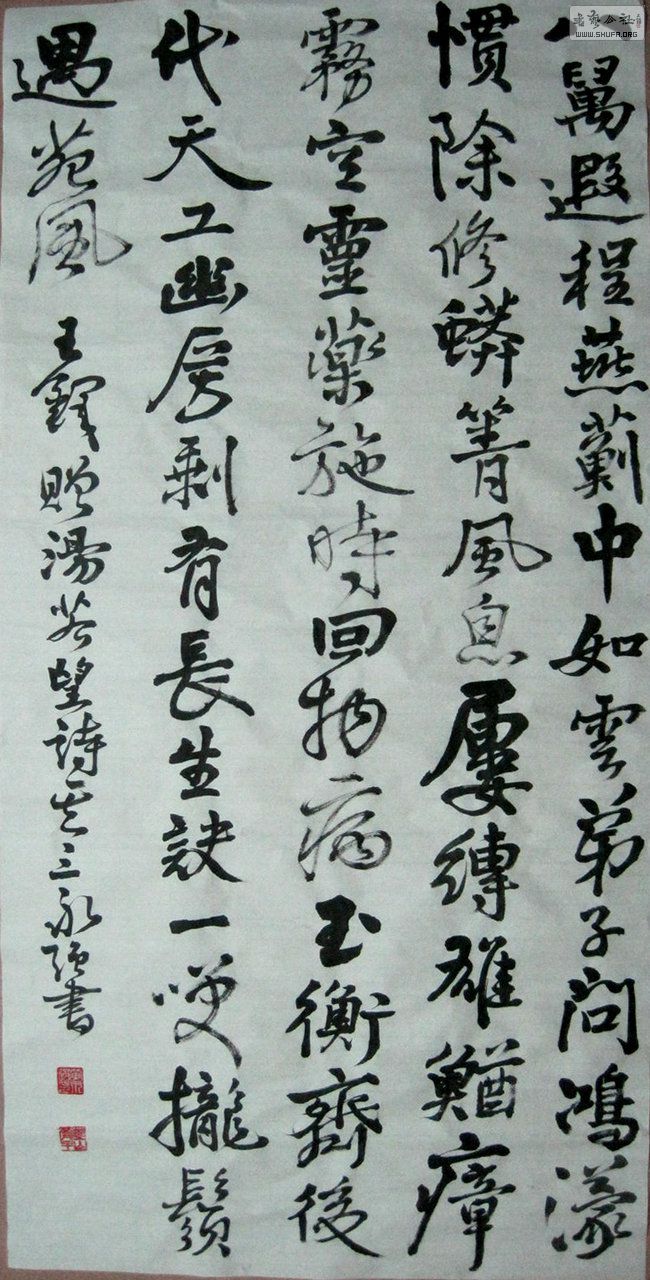 萬遐程燕薊中如雲弟子問鴻濛
慣除修蟒箐風息屢縛雄鰌瘴
霧空靈藥施時回物病玉衡齊後
代天工幽房剩有長生訣一咲攏鬚
遇苑風 王鐸贈湯若望詩其三永強書
書藝公社
WWW.SHUFA.ORG